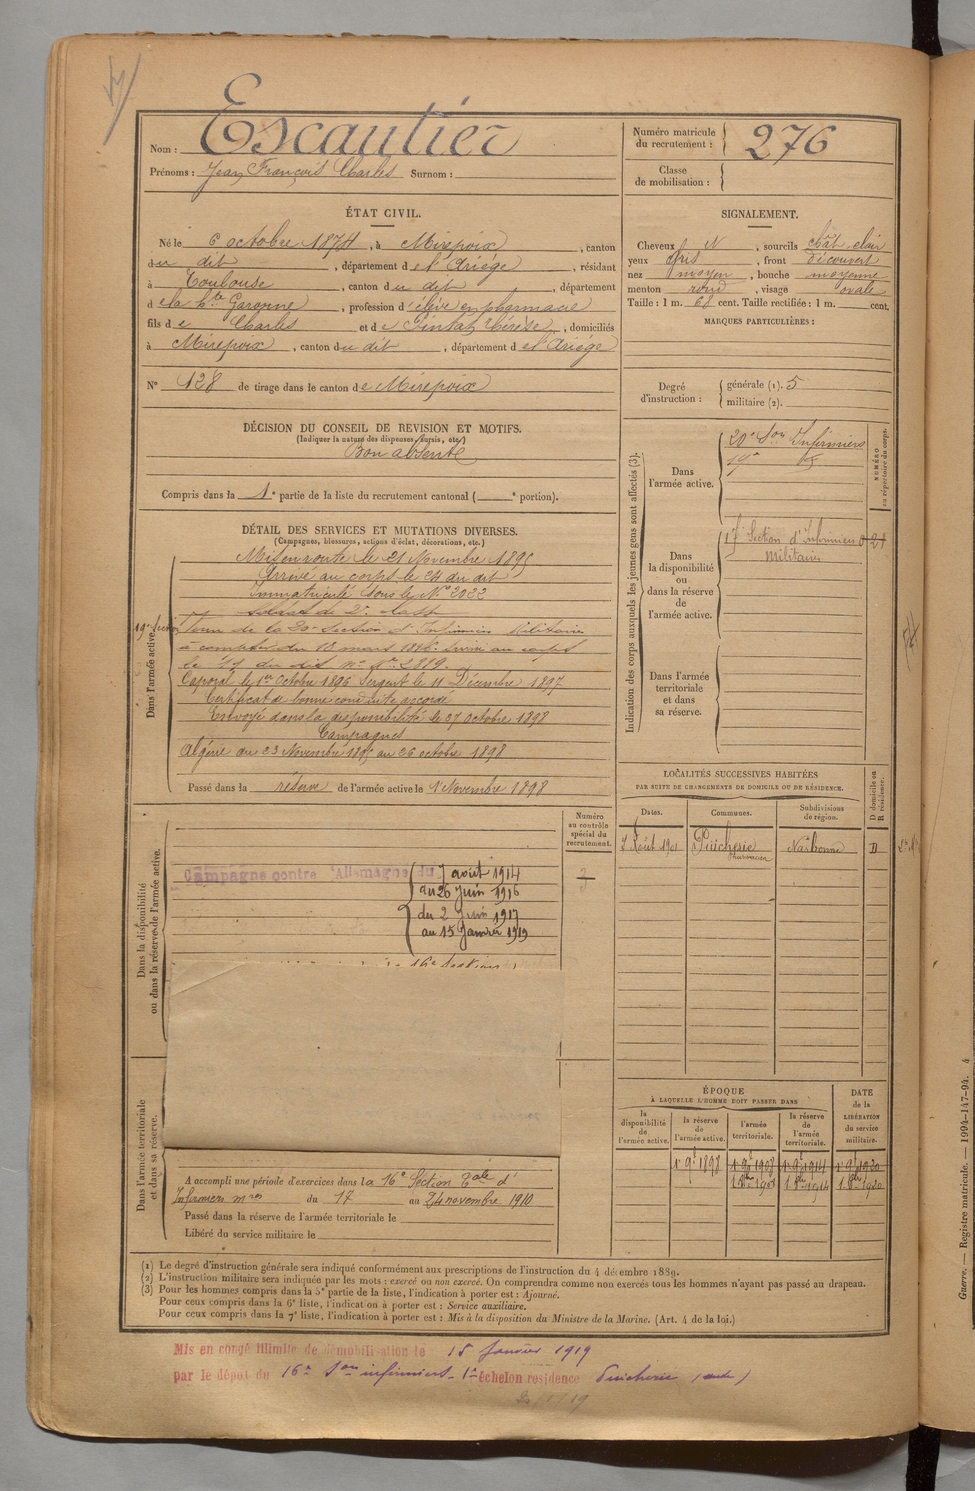 Nom : Escautier
Prénoms : Jean François Charles Surnom :
Numéro matricule du recrutement : 276
Classe de mobilisation :
ÉTAT CIVIL.
Né le 6 octobre 1874, à Mirepoix, canton
du dit, département de l'Ariège, résidant
à Toulouse, canton du dit, département
de la Hte Garonne, profession d'élève en pharmacie
fils de Charles et de Thérèse, domiciliés
à Mirepoix, canton du dit, département de l'Ariège
N° 128 de tirage dans le canton de Mirepoix
SIGNALEMENT.
Cheveux N, sourcils chât. clair
yeux gris, front découvert
nez moyen, bouche moyenne
menton rond, visage ovale
Taille : 1 m. 68 cent. Taille rectifiée : 1 m. cent.
MARQUES PARTICULIÈRES :
Degré d'instruction :
générale (1). 5
militaire (2).
DÉCISION DU CONSEIL DE REVISION ET MOTIFS.
(Indiquer la nature des dispenses, sursis, etc.)
Bon absent
Compris dans la 1e partie de la liste du recrutement cantonal (e portion).
DÉTAIL DES SERVICES ET MUTATIONS DIVERSES.
(Campagnes, blessures, actions d'éclat, décorations, etc.)
Dans l'armée active.
Mis en route le 21 Novembre 1895
Arrivé au corps le 24 du dit
Immatriculé sous le N° 2022
soldat de 2e classe
19e Section
de la 20e Section d'Infirmiers Militaires
à compter du 13 mars 1896. Arrivé au corps
le 17 du dit
Caporal le 1er Octobre 1896 Sergent le 11 Décembre 1897
Certificat de bonne conduite accordé
Envoyé dans la disponibilité le 27 octobre 1898
Campagnes
Algérie du 23 Novembre 1895 au 26 octobre 1898
Passé dans la réserve de l'armée active le 1 Novembre 1898
Indication des corps auxquels les jeunes gens sont affectés (3).
NUMÉRO au répertoire du corps.
Dans l'armée active.
20e Son Infirmiers
19e
Dans la disponibilité ou dans la réserve de l'armée active.
17 Section d'Infirmiers
Militaires
Dans l'armée territoriale et dans sa réserve.
LOCALITÉS SUCCESSIVES HABITÉES
PAR SUITE DE CHANGEMENTS DE DOMICILE OU DE RÉSIDENCE.
Dates. Communes. Subdivisions de région. D domicile ou R résidence.
7 Août 1901 Puicheric Narbonne D
Pharmacien
Numéro au contrôle spécial du recrutement.
Dans la disponibilité ou dans la réserve de l'armée active.
Campagne contre l'Allemagne du 7 août 1914
au 26 Juin 1916
du 2 Juin 1917
au 15 Janvier 1919
Dans l'armée territoriale et dans sa réserve.
A accompli une période d'exercices dans la 16e Section Tale d'
Infirmiers mres du 17 au 24 novembre 1910
Passé dans la réserve de l'armée territoriale le
Libéré du service militaire le
ÉPOQUE
À LAQUELLE L'HOMME DOIT PASSER DANS
DATE de la LIBÉRATION du service militaire.
la disponibilité de l'armée active.
la réserve de l'armée active.
l'armée territoriale.
la réserve de l'armée territoriale.
1r 9e 1898
(1) Le degré d'instruction générale sera indiqué conformément aux prescriptions de l'instruction du 4 décembre 1889.
(2) L'instruction militaire sera indiquée par les mots : exercé ou non exercé. On comprendra comme non exercés tous les hommes n'ayant pas passé au drapeau.
(3) Pour les hommes compris dans la 5e partie de la liste, l'indication à porter est : Ajourné.
Pour ceux compris dans la 6e liste, l'indication à porter est : Service auxiliaire.
Pour ceux compris dans la 7e liste, l'indication à porter est : Mis à la disposition du Ministre de la Marine. (Art. 4 de la loi.)
Mis en congé illimité de démobilisation le 15 Janvier 1919
par le dépôt du 16e Son infirmiers 1er échelon residence Puicheric (Aude)
Guerre. — Registre matricule. — 1994-147-94. 4